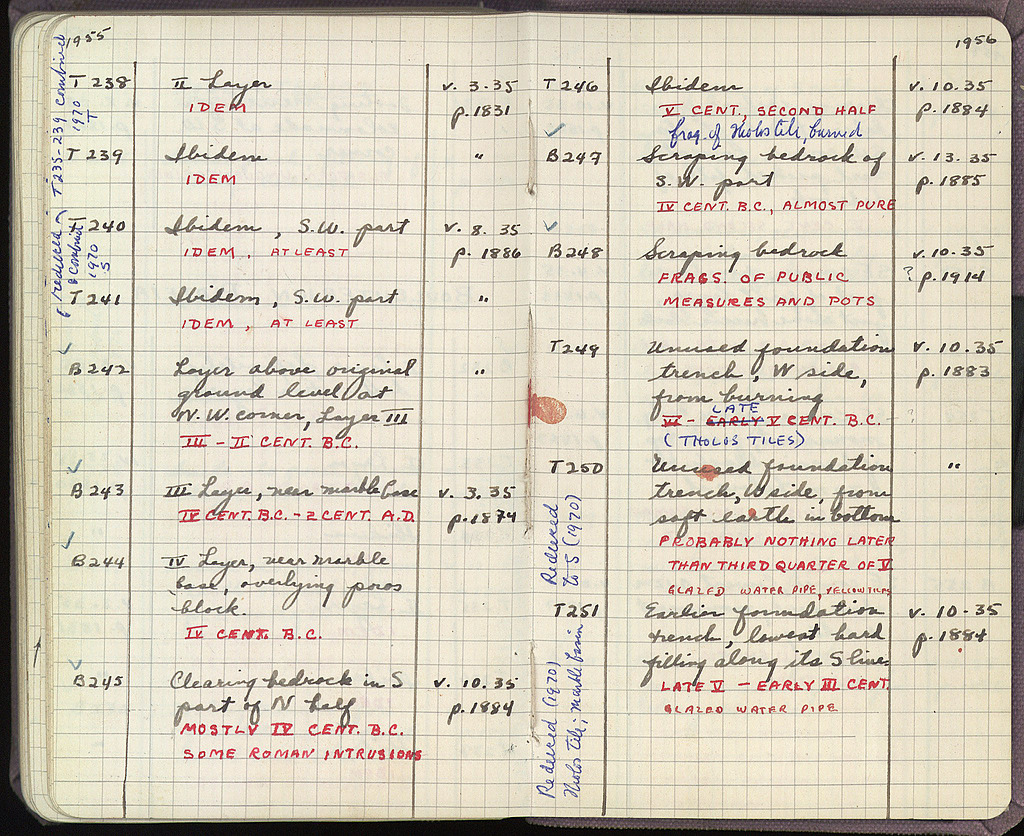 1955
T 238 II Layer v. 3.35
IDEM p. 1831
T 239 Ibidem "
IDEM
T 240 Ibidem, S.W. part v. 8.35
IDEM, AT LEAST p. 1886
T 241 Ibidem, S.W. part "
IDEM, AT LEAST
B 242 Layer above original "
ground level at
N.W. corner, Layer III
III - II CENT. B.C.
B 243 III Layer, near marble base v. 3.35
IV CENT. B.C. - 2 CENT. A.D. p. 1874
B 244 IV Layer, near marble
base, overlying poros
block.
IV CENT. B.C.
B 245 Clearing bedrock in S v. 10.35
part of N half p. 1884
MOSTLY IV CENT. B.C.
SOME ROMAN INTRUSIONS
T 235-239 combined
1970
T
reduced
& combined
1970
S
1956
T 246 Ibidem v. 10.35
V CENT, SECOND HALF p. 1884
frag. of Tholos tile, burned
B 247 Scraping bedrock of v. 13.35
S.W. part p. 1885
IV CENT. B.C., ALMOST PURE
B 248 Scraping bedrock v. 10.35
FRAGS. OF PUBLIC ? p. 1914
MEASURES AND POTS
T 249 Unused foundation v. 10.35
trench, W side, p. 1883
from burning
LATE
VI - EARLY V CENT. B.C. - ?
(THOLOS TILES)
T 250 Unused foundation "
trench, W side, from
soft earth in bottom
PROBABLY NOTHING LATER
THAN THIRD QUARTER OF V
GLAZED WATER PIPE, YELLOW TILES
T 251 Earlier foundation v. 10.35
trench, lowest hard p. 1884
filling along its S line
LATE V - EARLY III CENT.
GLAZED WATER PIPE
Reduced
to S (1970)
Reduced (1970)
Tholos tile; marble basin